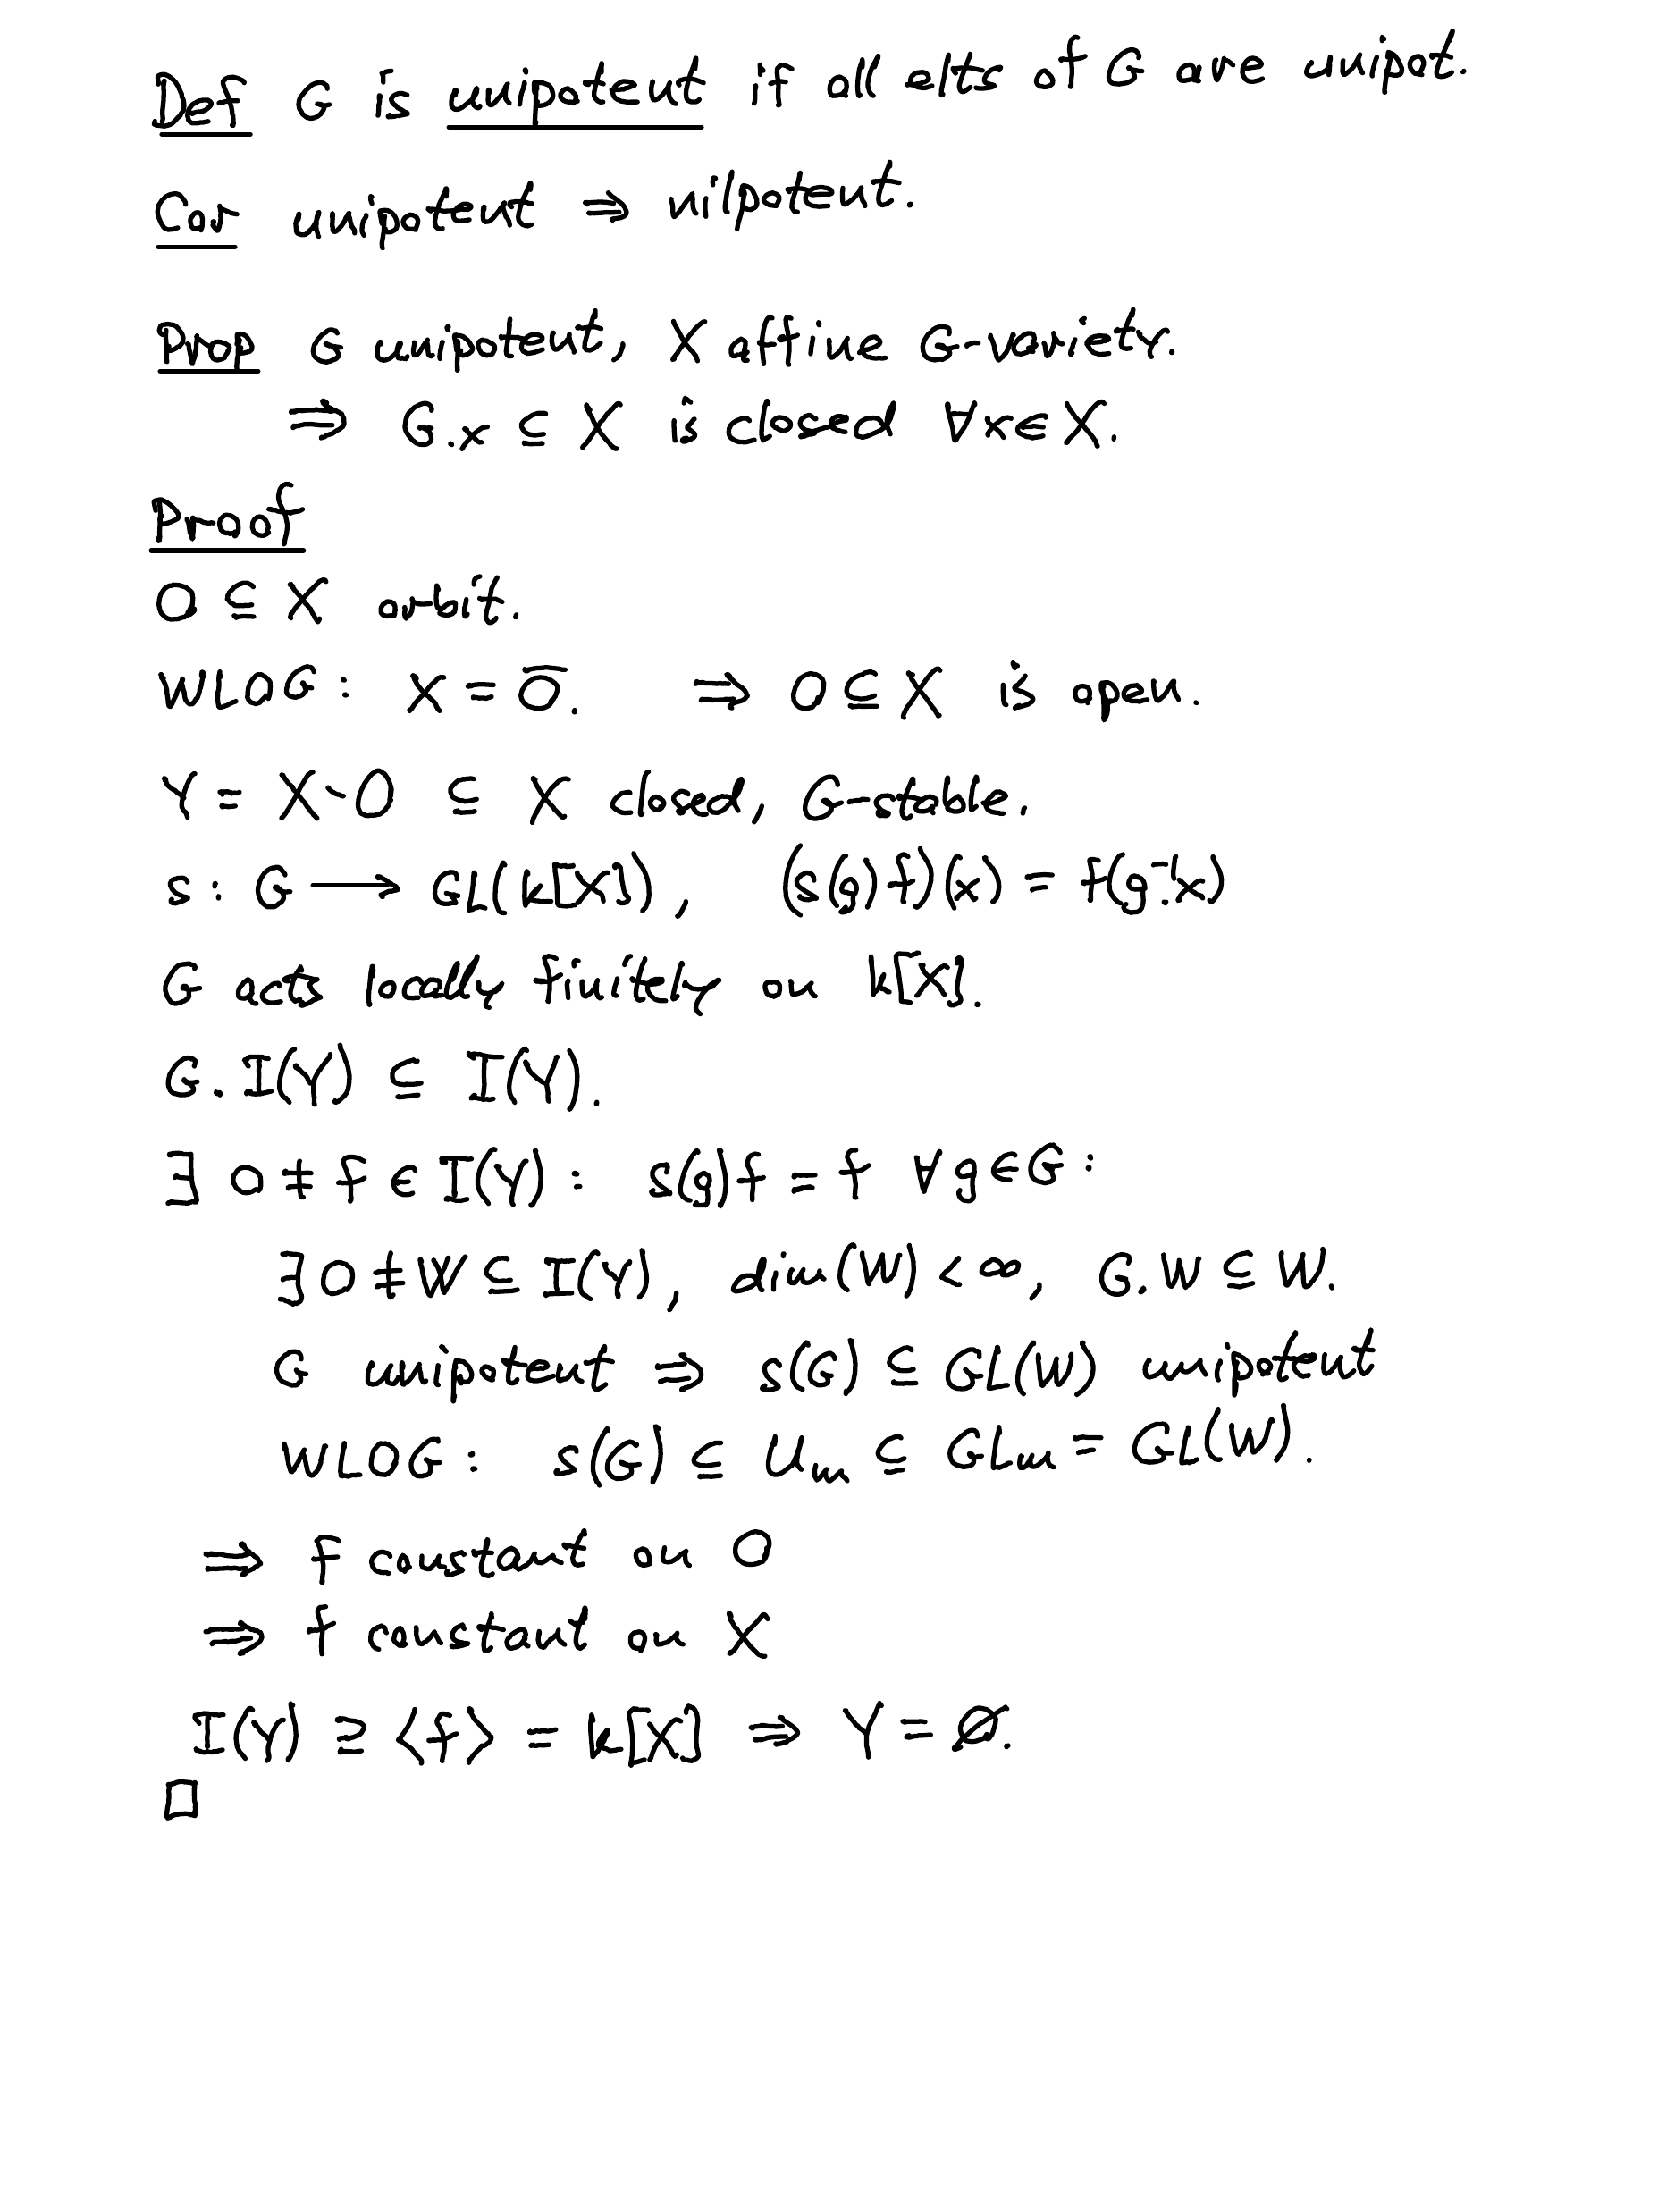 Def G is unipotent if all elts of G are unipot.
Cor unipotent ⇒ nilpotent.
Prop G unipotent, X affine G-variety.
⇒ G.x ⊆ X is closed ∀x∈X.
Proof
O ⊆ X orbit.
WLOG: X = O̅. ⇒ O ⊆ X is open.
Y = X∖O ⊆ X closed, G-stable.
s: G ⟶ GL(k[X]), (s(g)f)(x) = f(g⁻¹.x)
G acts locally finitely on k[X].
G.I(Y) ⊆ I(Y).
∃ 0 ≠ f ∈ I(Y): s(g)f = f ∀g∈G:
∃ 0 ≠ W ⊆ I(Y), dim(W) < ∞, G.W ⊆ W.
G unipotent ⇒ s(G) ⊆ GL(W) unipotent
WLOG: s(G) ⊆ Uₘ ⊆ GLₘ = GL(W).
⇒ f constant on O
⇒ f constant on X
I(Y) ⊇ ⟨f⟩ = k[X] ⇒ Y = ∅.
□